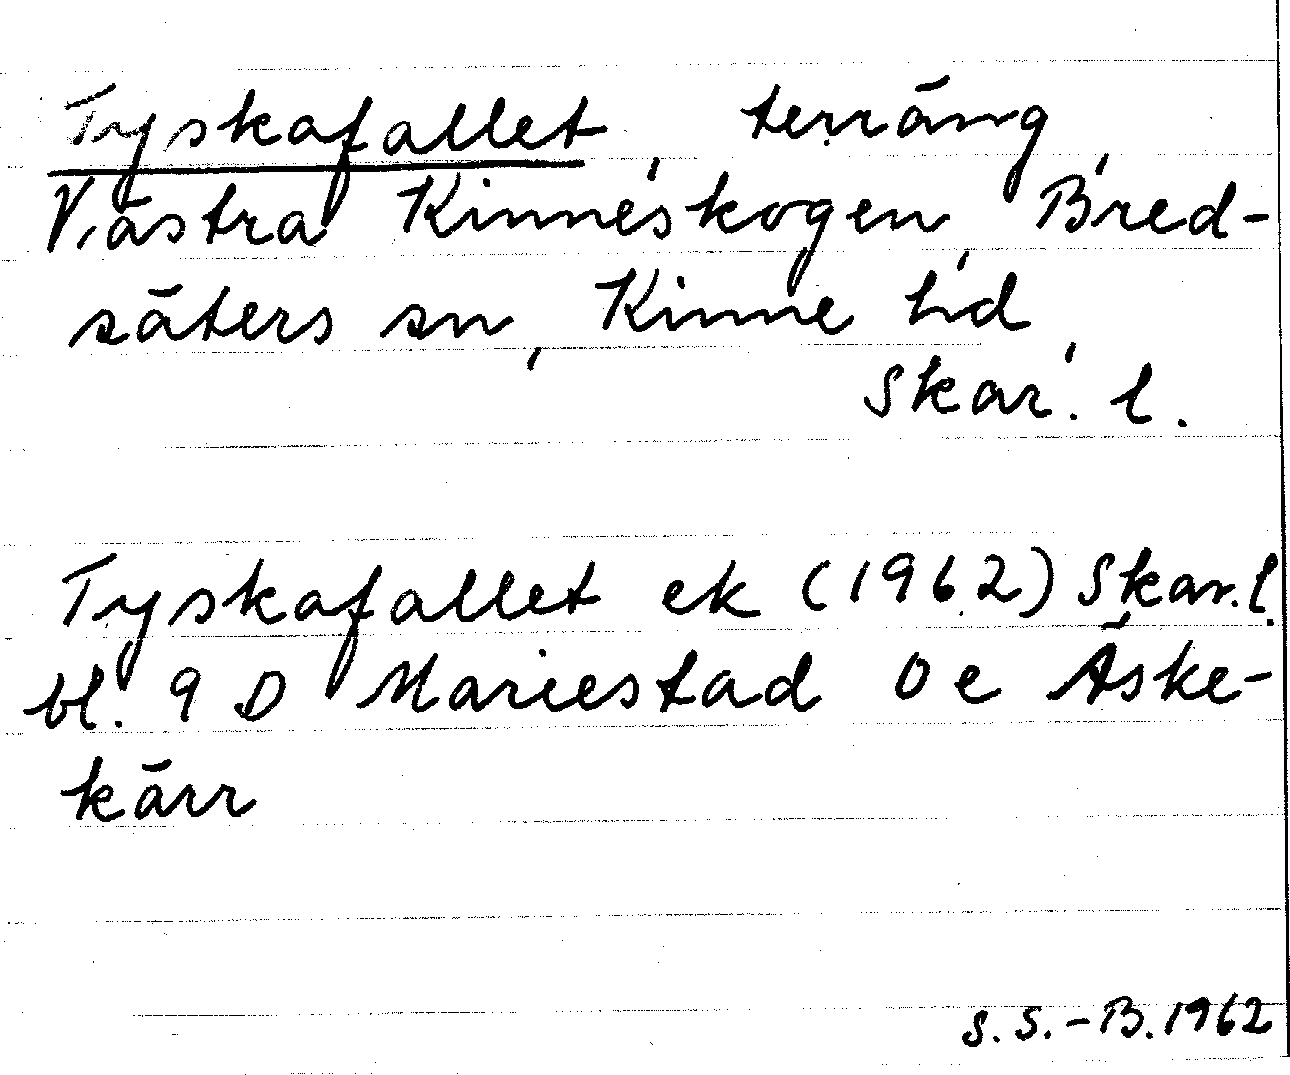 Tyskafallet, terräng,
Västra Kinneskogen, Bred-
säters sn, Kinne hd,
Skar. l.
Tyskafallet ek (1962) Skar. l.
bl. 9 D Mariestad 0 e Äske-
kärr
S. S.-B. 1962